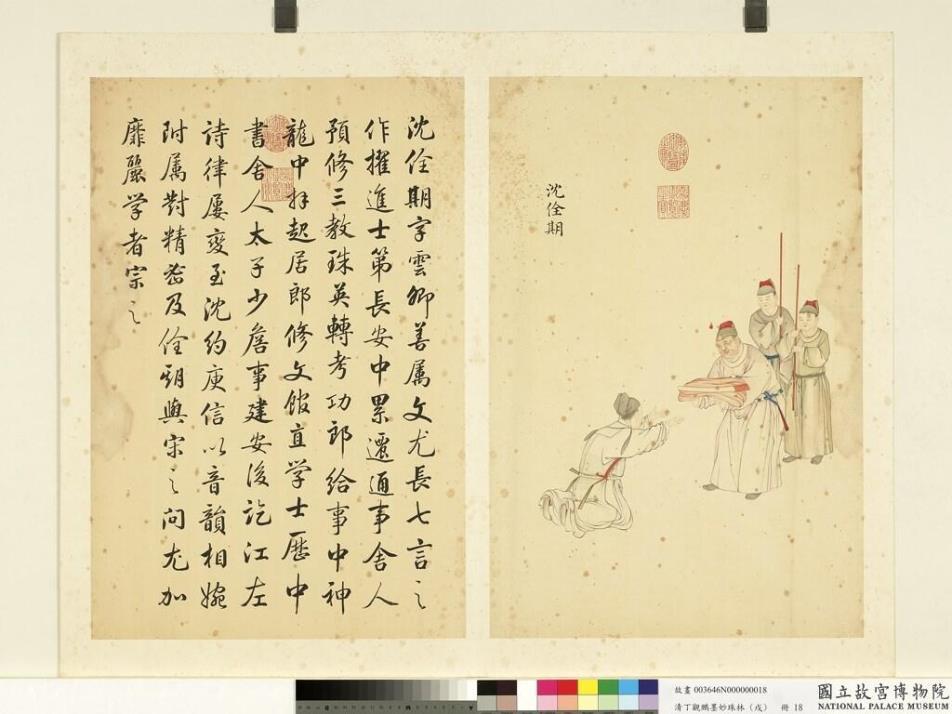 沈佺期
沈佺期字雲卿善属文尤長七言之
作擢進士第長安中累遷通事舍人
預修三教珠英轉考功郎給事中神
龍中拜起居郎修文館直学士歷中
書舍人太子少詹事建安後訖江左
詩律屢變至沈約庾信以音韻相婉
附属對精密及佺期與宋之问尤加
靡麗学者宗之
故畫 003646N000000018
清丁觀鵬墨妙珠林（戌） 冊 18
國立故宮博物院
NATIONAL PALACE MUSEUM